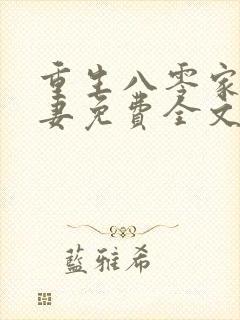 重生八零家
妻免費全文
藍雅希